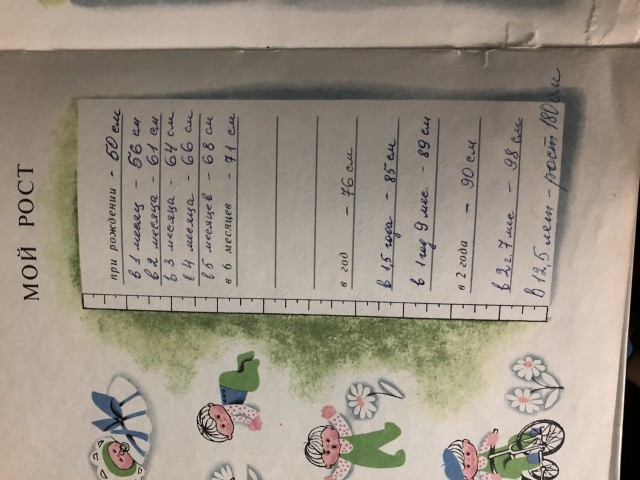 МОЙ РОСТ
при рождении - 50 см
в 1 месяц - 56 см
в 2 месяца - 61 см
в 3 месяца - 64 см
в 4 месяца - 66 см
в 5 месяцев - 68 см
в 6 месяцев - 71 см
в год - 76 см
в 1,5 года - 85 см
в 1 год 9 мес. - 89 см
в 2 года - 90 см
в 2 г. 7 мес - 98 см
в 12,5 лет - рост 180 см